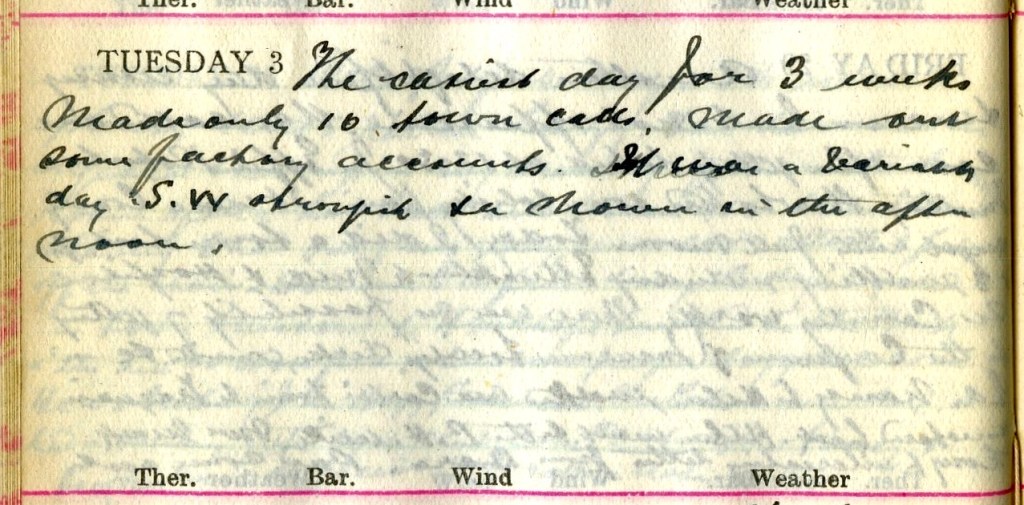 Ther. Bar. Wind Weather
TUESDAY 3 The easiest day for 3 weeks
Made only 10 town calls. Made out
some factory accounts. It was a variable
day S.W in the after
noon.
Ther. Bar. Wind Weather